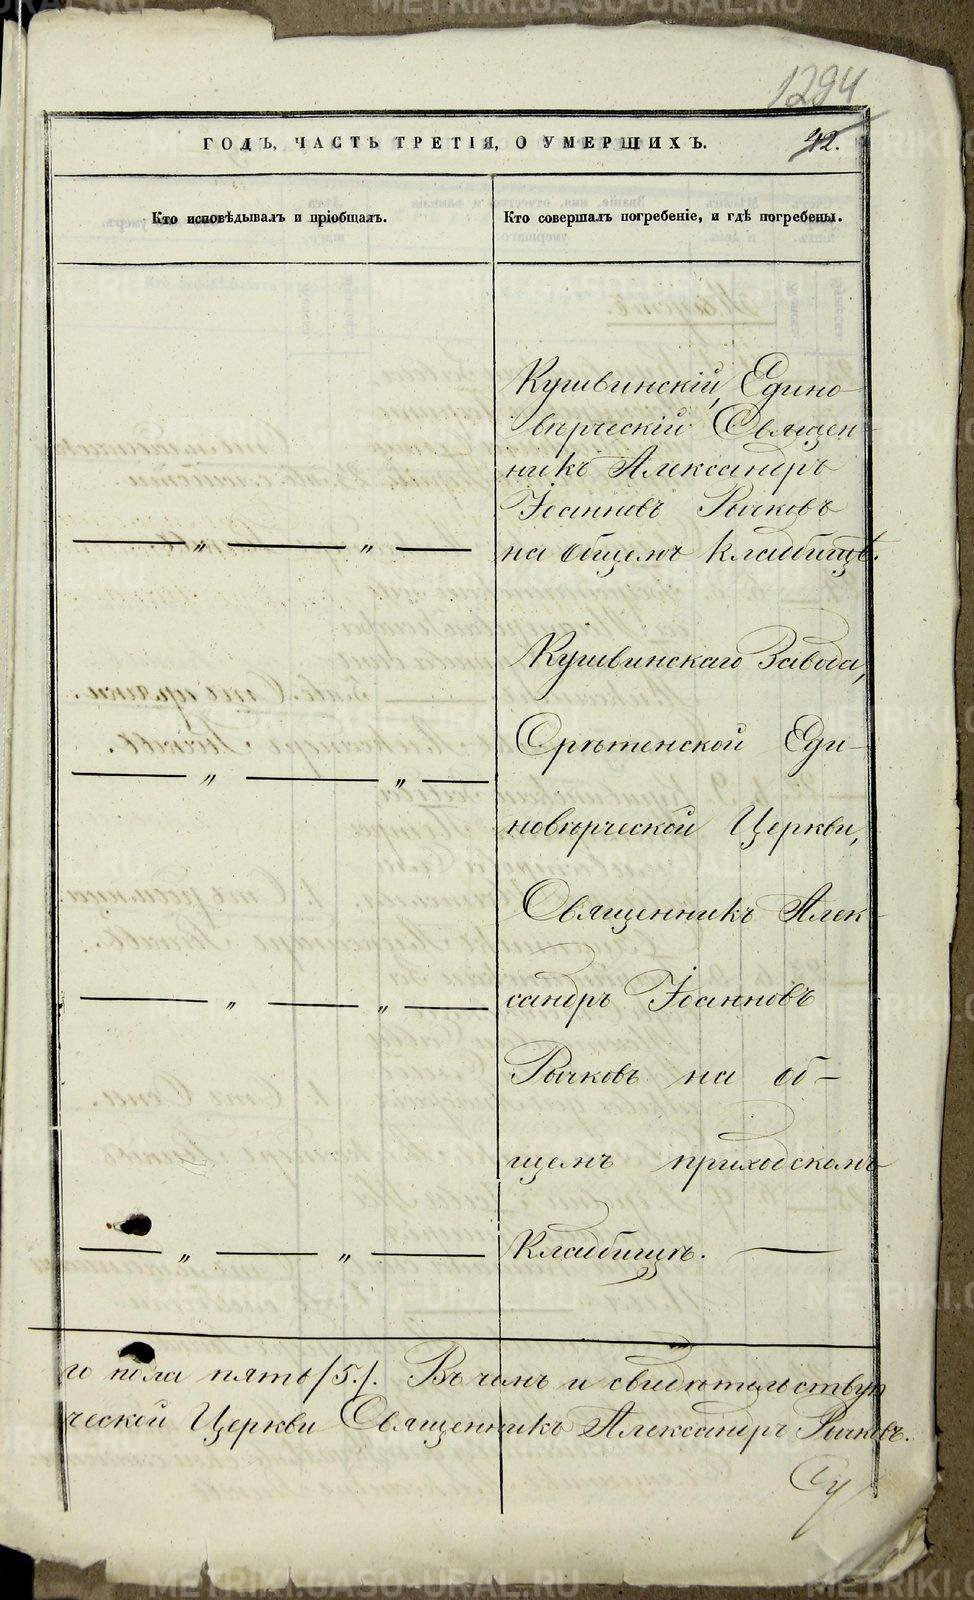 1294
ГОДЪ, ЧАСТЬ ТРЕТІЯ, О УМЕРШИХЪ.
42.
Кто исповѣдывалъ и пріобщалъ.
Кто совершалъ погребеніе, и гдѣ погребены.
Кушвинскій, Едино
вѣрческій Священ-
никъ Александръ
Іоанновъ Рычковъ
на общемъ кладбищѣ.
— „ — „ —
Кушвинскаго Завода,
Срѣтенской Еди-
— „ — „ —
новѣрческой Церкви,
Священникъ Алек-
сандръ Іоанновъ
— „ — „ —
Рычковъ на об-
щемъ приходскомъ
кладбищѣ. —
— „ — „ —
го пола пять /5./. Въ чемъ и свидѣтельствую
ческой Церкви Священникъ Александръ Рычковъ.
METRIKI.GASO-URAL.RU